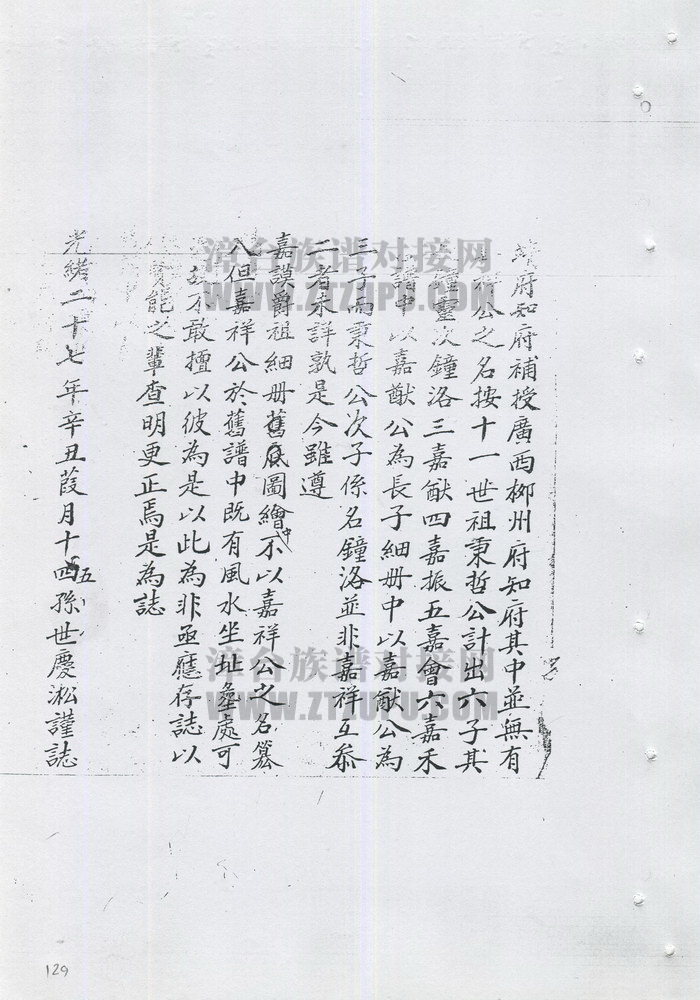 府知府補授廣西柳州府知府其中並無有
公之名按十一世祖秉哲公計出六子其
靈次鐘洛三嘉猷四嘉振五嘉會六嘉禾
譜中以嘉猷公為長子細册中以嘉猷公為
三子而秉哲公次子係名鐘洛並非嘉祥互叅
二者未詳孰是今雖遵
嘉謨爵祖細册舊底圖繪中不以嘉祥公之名纂
入但嘉祥公於舊譜中既有風水坐址臺處可
不敢擅以彼為是以此為非亟應存誌以
能之輩查明更正焉是為誌
光緒二十七年辛丑葭月十五四孫世慶淞謹誌
漳台族谱对接网
WWW.ZTZUPU.COM
漳台族谱对接网
WWW.ZTZUPU.COM
129